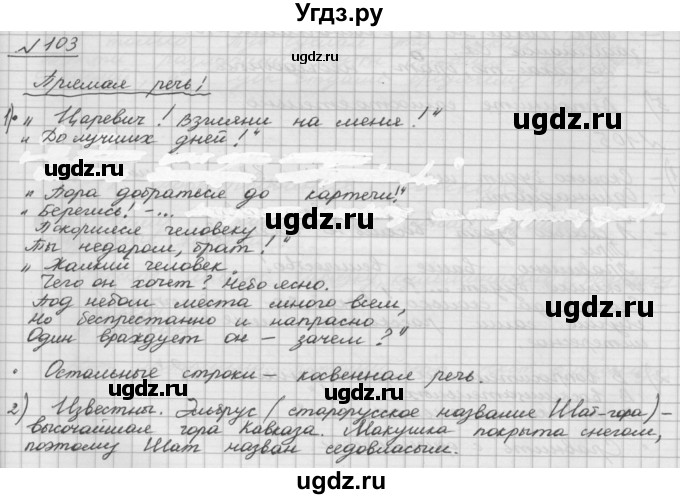 Угdz.ру
№ 103
Прямая речь!
1)• „Царевич! Взгляни на меня!“
„До лучших дней!“
„Пора добраться до картечи!“
„Берегись! – ...
Покорился человеку
Ты недаром, брат!“
„Жалкий человек.
Чего он хочет? Небо ясно.
Под небом места много всем,
Но беспрестанно и напрасно
Один враждует он – зачем?“
• Остальные строки – косвенная речь.
2) Известны. Эльбрус (старорусское название Шат-гора) –
высочайшая гора Кавказа. Макушка покрыта снегом,
поэтому Шат назван седовласым.
ugdz.ru
ugdz.ru
ugdz.ru
ugdz.ru
ugdz.ru
ugdz.ru
ugdz.ru
ugdz.ru
ugdz.ru
ugdz.ru